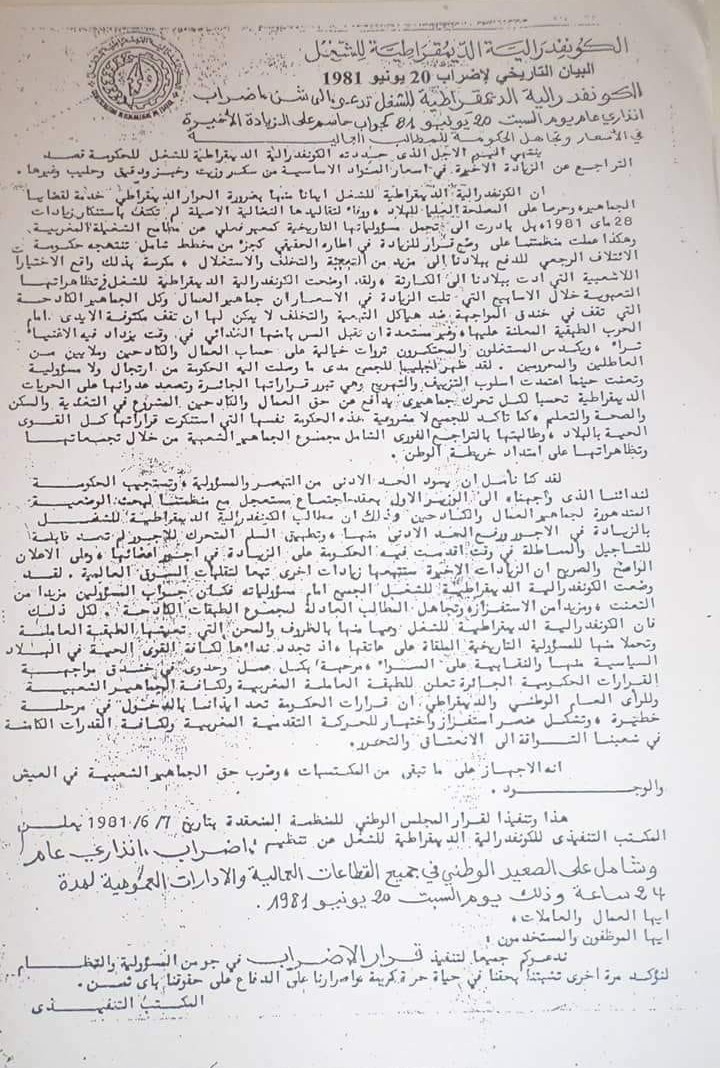 الكونفدرالية الديمقراطية للشغل
البيان التاريخي لإضراب 20 يونيو 1981
الكونفدرالية الديمقراطية للشغل تدعو إلى شن إضراب
انذاري عام يوم السبت 20 يونيو 81 كجواب حاسم على الزيادة الأخيرة
في الأسعار وتجاهل الحكومة للمطالب الحالية
ينتهي اليوم الاجل الذي حددته الكونفدرالية الديمقراطية للشغل للحكومة قصد
التراجع عن الزيادة الاخيرة في اسعار المواد الاساسية من سكر وزيت وخبز ودقيق وحليب وغيرها.
ان الكونفدرالية الديمقراطية للشغل ايمانا منها بضرورة الحوار الديمقراطي خدمة لقضايا
الجماهير، وحرصا على المصلحة العليا للبلاد، ووفاء لتقاليدها النضالية الاصيلة لم تكتف باستنكار زيادات
28 ماي 1981، بل بادرت الى تحمل مسؤولياتها التاريخية كمعبر فعلي عن مطامح الشغيلة المغربية.
وهكذا عملت منظمتنا على وضع قرار الزيادة في اطاره الحقيقي كجزء من مخطط شامل تنتهجه حكومة
الائتلاف الرجعي للدفع ببلادنا الى مزيد من التبعية والتخلف والاستغلال، مكرسة بذلك واقع الاختيارات
اللاشعبية التي ادت ببلادنا الى الكارثة، ولقد اوضحت الكونفدرالية الديمقراطية للشغل في تظاهراتها
التعبوية خلال الاسابيع التي تلت الزيادة في الاسعار ان جماهير العمال وكل الجماهير الكادحة
التي تقف في خندق المواجهة ضد هياكل التبعية والتخلف لا يمكن لها ان تقف مكتوفة الايدي امام
الحرب الطبقية المعلنة عليها، وغير مستعدة ان تقبل المس بامنها الغذائي في وقت يزداد فيه الاغنياء
ثراء، ويكدس المستغلون والمحتكرون ثروات خيالية على حساب العمال والكادحين وملايين من
العاطلين والمحرومين. لقد ظهر جليا للجميع مدى ما وصلت اليه الحكومة من ارتجال ولا مسؤولية
وتعنت حينما اعتمدت اسلوب التزييف والتهريج وهي تبرر قراراتها الجائرة وتصعد عدوانها على الحريات
الديمقراطية تحسبا لكل تحرك جماهيري يدافع عن حق العمال والكادحين المشروع في التغذية والسكن
والصحة والتعليم، كما تاكد للجميع لا مشروعية هذه الحكومة نفسها التي استنكرت قراراتها كل القوى
الحية بالبلاد، وطالبتها بالتراجع الفوري الشامل مجموع الجماهير الشعبية من خلال تجمعاتها
وتظاهراتها على امتداد خريطة الوطن.
لقد كنا نأمل ان يسود الحد الادنى من التبصر والمسؤولية، وتستجيب الحكومة
لندائنا الذي وجهناه الى الوزير الاول بعقد اجتماع مستعجل مع منظمتنا لبحث الوضعية
المتدهورة لجماهير العمال والكادحين وذلك ان مطالب الكونفدرالية الديمقراطية للشغل
بالزيادة في الاجور ورفع الحد الادنى منها، وتطبيق السلم المتحرك للاجور لم تعد قابلة
للتاجيل والمماطلة في وقت اقدمت فيه الحكومة على الزيادة في اجور اعضائها، وعلى الاعلان
الواضح والصريح ان الزيادات الاخيرة ستتبعها زيادات اخرى تبعا لتقلبات السوق العالمية. لقد
وضعت الكونفدرالية الديمقراطية للشغل الجميع امام مسؤولياته فكان جواب المسؤولين مزيدا من
التعنت، ومزيدا من الاستفزاز، وتجاهل المطالب العادلة لمجموع الطبقات الكادحة. لكل ذلك
فان الكونفدرالية الديمقراطية للشغل وعيا منها بالظروف والمحن التي تعيشها الطبقة العاملة
وتحملا منها للمسؤولية التاريخية الملقاة على عاتقها، اذ تجدد نداءها لكافة القوى الحية في البلاد
السياسية منها والنقابية على السواء، مرحبة بكل عمل وحدوي في خندق مواجهة
القرارات الحكومية الجائرة تعلن للطبقة العاملة المغربية ولكافة الجماهير الشعبية
وللرأى العام الوطني والديمقراطي ان قرارات الحكومة تعد ايذانا بالدخول في مرحلة
خطيرة، وتشكل عنصر استفزاز واختبار للحركة التقدمية المغربية ولكافة القدرات الكامنة
في شعبنا التواقة الى الانعتاق والتحرر.
انه الاجهاز على ما تبقى من المكتسبات، وضرب حق الجماهير الشعبية في العيش
والوجود.
هذا وتنفيذا لقرار المجلس الوطني للمنظمة المنعقدة بتاريخ 7/6/1981 يعلن
المكتب التنفيذي للكونفدرالية الديمقراطية للشغل عن تنظيم إضراب إنذاري عام
وشامل على الصعيد الوطني في جميع القطاعات العمالية والادارات العمومية لمدة
24 ساعة وذلك يوم السبت 20 يونيو 1981.
ايها العمال والعاملات،
ايها الموظفون والمستخدمون:
ندعوكم جميعا لتنفيذ قرار الإضراب في جو من المسؤولية والنظام
لنؤكد مرة اخرى تشبثنا بحقنا في حياة حرة كريمة واصرارنا على الدفاع على حقوقنا باى ثمن.
المكتب التنفيذي